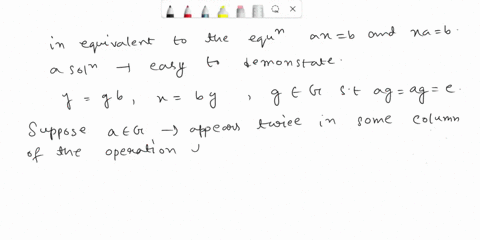 in equivalent to the equⁿ ax=b and xa=b.
a solⁿ → easy to demonstate.
y = gb, x = by , g ∈ G s.t ag = ag = e.
Suppose a ∈ G → appears twice in some column
of the operation